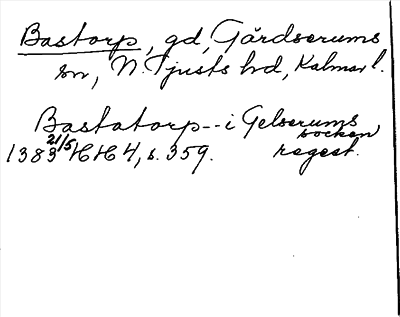 Bastorp, gd, Gärdserums
sn, N. Tjusts hd, Kalmar l.
Bastatorp -- i Gelserums
socken
1383 21/5 HH 4, s. 359. regest.